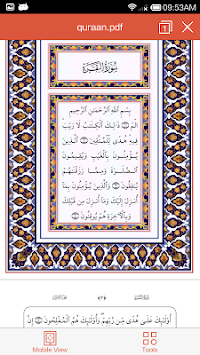 09:53AM
quraan.pdf
1
سورة البقرة
بسم الله الرحمن الرحيم
الم ۝ ذلك الكتب لا ريب
فيه هدى للمتقين ۝ الذين
يؤمنون بالغيب ويقيمون
الصلوة ومما رزقنهم
ينفقون ۝ والذين يؤمنون بما
أنزل إليك وما أنزل من قبلك
وبالآخرة هم يوقنون
أولئك على هدى من ربهم وأولئك هم المفلحون ۝ إن
Mobile View
Tools